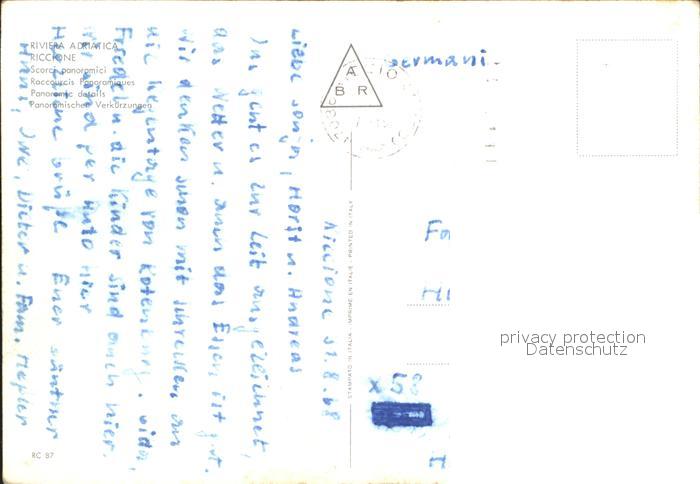 RIVIERA ADRIATICA
RICCIONE
Scorci panoramici
Raccourcis Panoramiques
Panoramic details
Panoramischen Verkürzungen
A
B R
Germani
Riccione 31.8.68
Liebe Sonja, Horst u. Andreas
Uns geht es zur Zeit ausgezeichnet,
das Wetter u. auch das Essen ist gut.
Wir denken schon mit Schrecken an
die Regentage von
die Kinder sind auch hier.
wir sind per Auto hier
Herzliche Grüße Euer Günther
Anni, Dieter u. Fam.
STAMPATO IN ITALIA - IMPRIMÉ EN ITALIE - PRINTED IN ITALY
Fa
Hi
x 58
I
RC 87
privacy protection
Datenschutz